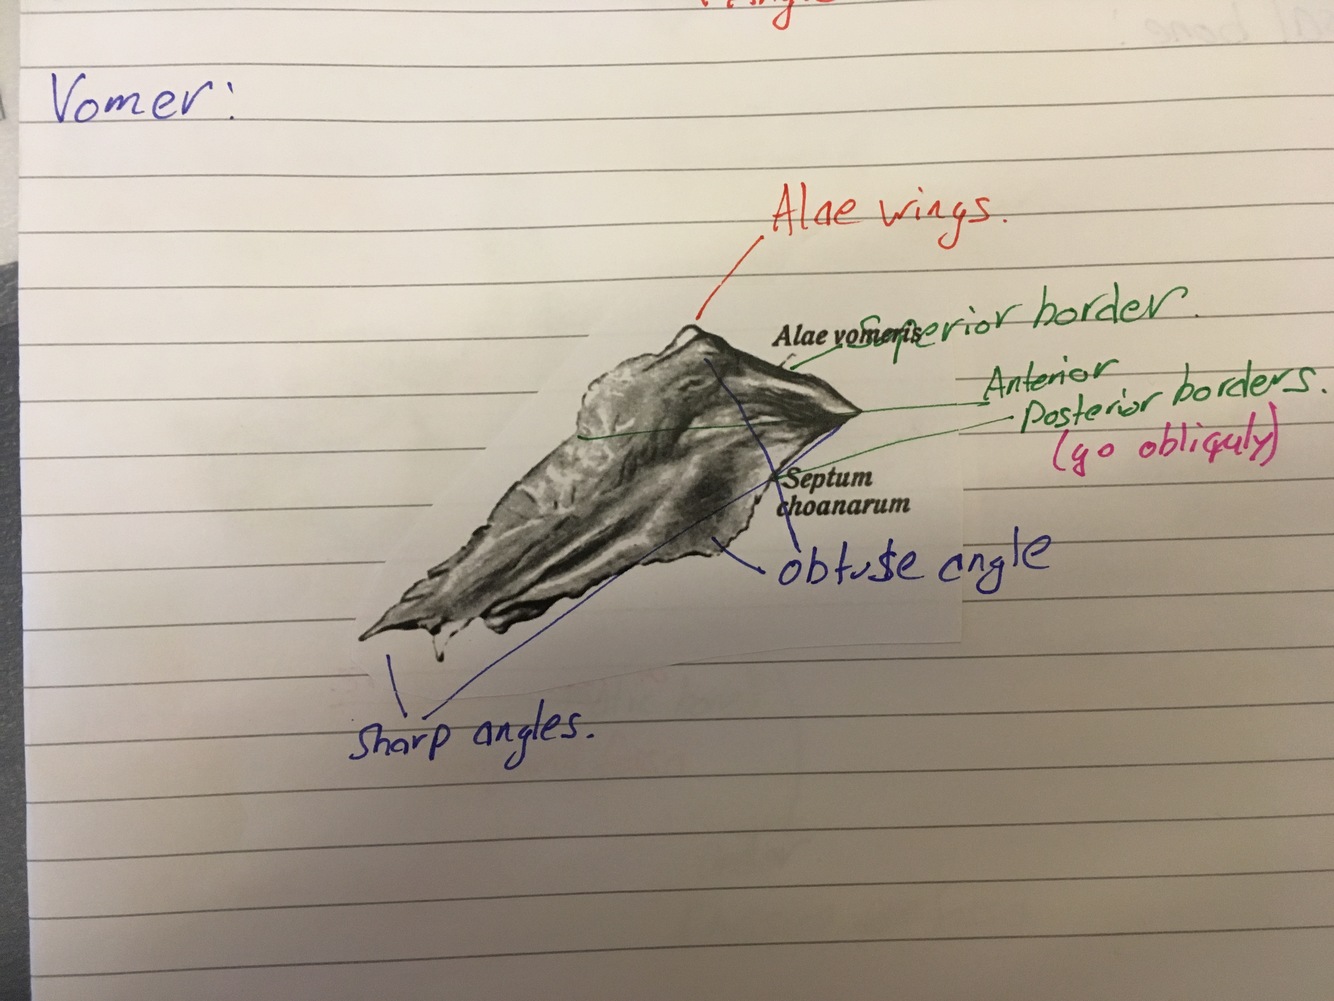 Vomer:
Alae wings.
Alae vomeris
Superior border.
Anterior
Posterior borders.
(go obliquly)
Septum
choanarum
obtuse angle
sharp angles.